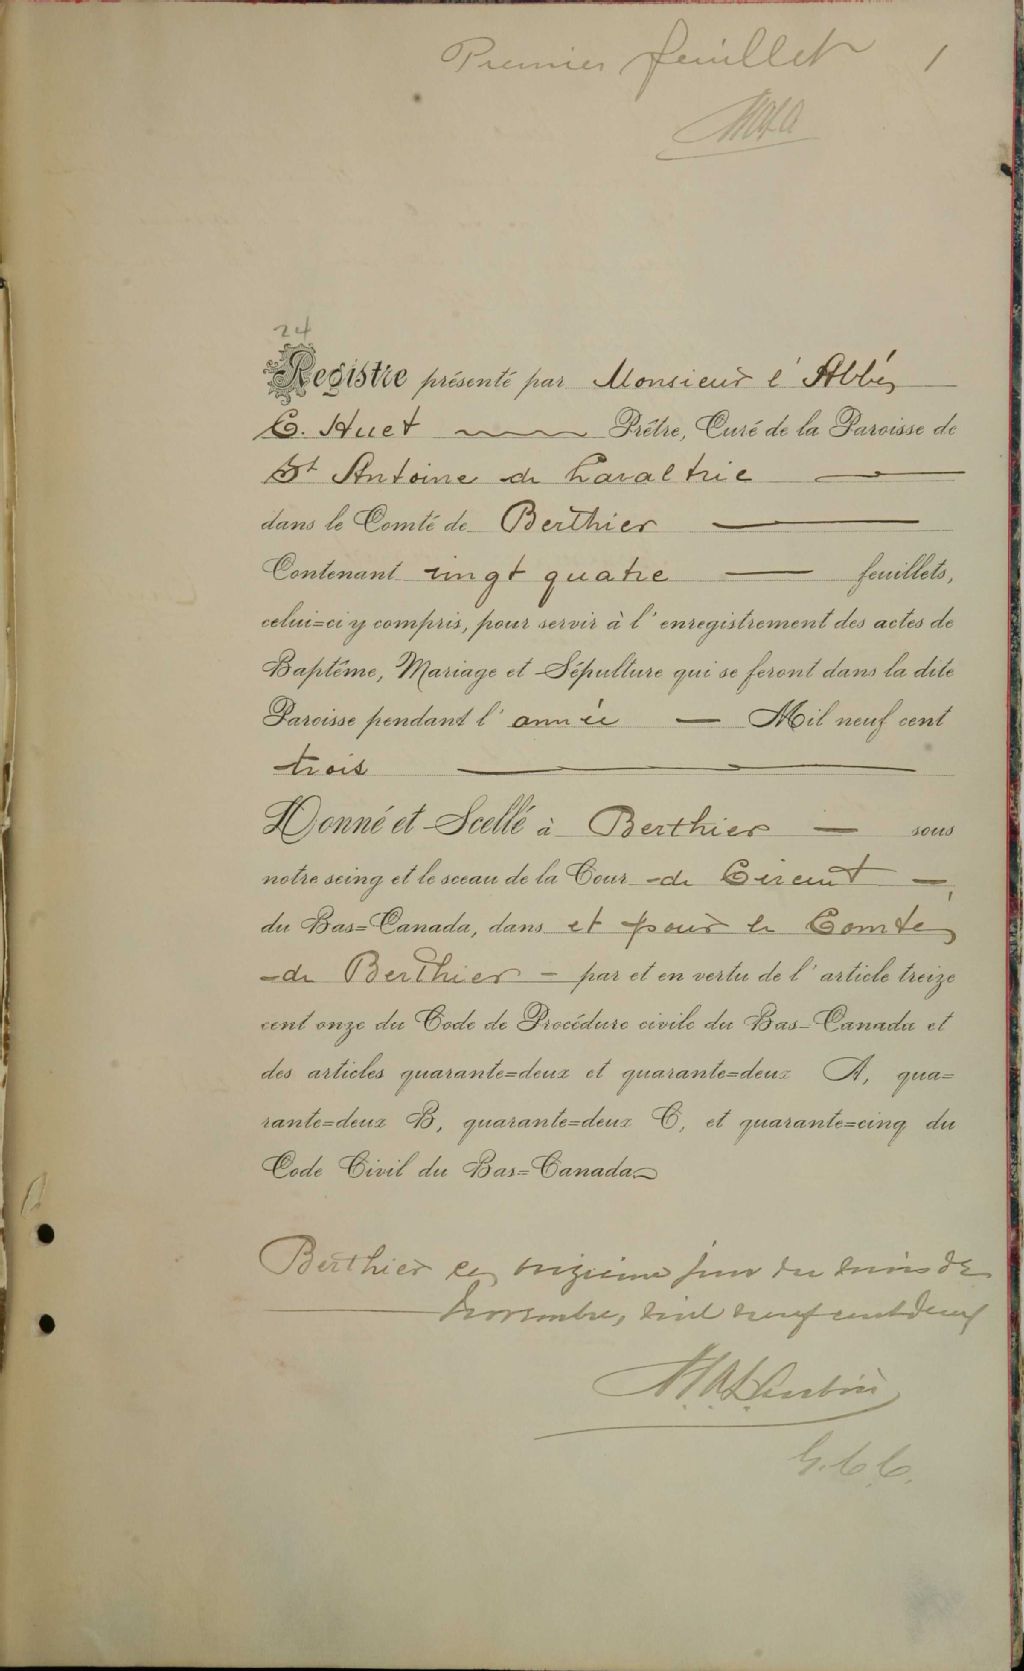 Premier feuillet 1
24
Registre présenté par Monsieur l'Abbé
C. Huet Prêtre, Curé de la Paroisse de
St Antoine de Lavaltrie
dans le Comté de Berthier
Contenant vingt quatre feuillets,
celui=ci y compris, pour servir à l'enregistrement des actes de
Baptême, Mariage et Sépulture qui se feront dans la dite
Paroisse pendant l'année Mil neuf cent
trois
Donné et Scellé à Berthier sous
notre seing et le sceau de la Cour de Circuit
du Bas=Canada, dans et pour le Comté
de Berthier par et en vertu de l'article treize
cent onze du Code de Procédure civile du Bas-Canada et
des articles quarante=deux et quarante=deux A, qua=
rante=deux B, quarante=deux C, et quarante=cinq du
Code Civil du Bas=Canada
Berthier ce jour du mois de
novembre, mil neuf cent deux
G.C.C.